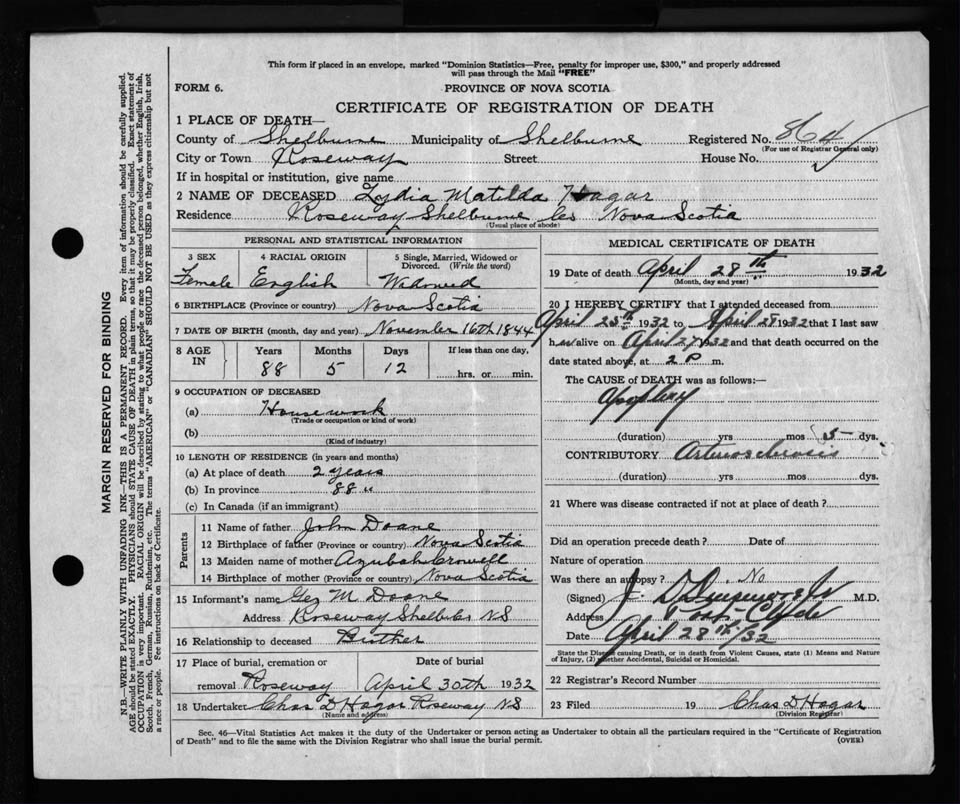 This form if placed in an envelope, marked "Dominion Statistics—Free, penalty for improper use, $300," and properly addressed
will pass through the Mail "FREE"
FORM 6. PROVINCE OF NOVA SCOTIA
CERTIFICATE OF REGISTRATION OF DEATH
1 PLACE OF DEATH—
County of Shelburne Municipality of Shelburne Registered No. 864
(For use of Registrar General only)
City or Town Roseway Street House No.
If in hospital or institution, give name
2 NAME OF DECEASED Lydia Matilda Hagar
Residence Roseway Shelburne Co Nova Scotia
(Usual place of abode)
PERSONAL AND STATISTICAL INFORMATION
3 SEX 4 RACIAL ORIGIN 5 Single, Married, Widowed or
Divorced. (Write the word)
Female English Widowed
6 BIRTHPLACE (Province or country) Nova Scotia
7 DATE OF BIRTH (month, day and year) November 16th 1844
8 AGE IN Years Months Days If less than one day,
88 5 12 hrs. or min.
9 OCCUPATION OF DECEASED
(a) Housework
(Trade or occupation or kind of work)
(b)
(Kind of industry)
10 LENGTH OF RESIDENCE (in years and months)
(a) At place of death 2 years
(b) In province 88 "
(c) In Canada (if an immigrant)
Parents
11 Name of father John Doane
12 Birthplace of father (Province or country) Nova Scotia
13 Maiden name of mother Azubah Crowell
14 Birthplace of mother (Province or country) Nova Scotia
15 Informant's name Geo M. Doane
Address Roseway Shelb Co NS
16 Relationship to deceased Brother
17 Place of burial, cremation or Date of burial
removal Roseway April 30th 1932
18 Undertaker Chas D Hagar Roseway NS
(Name and address)
MEDICAL CERTIFICATE OF DEATH
19 Date of death April 28th 1932
(Month, day and year)
20 I HEREBY CERTIFY that I attended deceased from
April 25th 1932 to April 28 1932 that I last saw
h er alive on April 27 1932 and that death occurred on the
date stated above, at 2 P m.
The CAUSE of DEATH was as follows:
Apoplexy
(duration) yrs mos 5 dys.
CONTRIBUTORY Arteriosclerosis
(duration) yrs mos dys.
21 Where was disease contracted if not at place of death?
Did an operation precede death? Date of
Nature of operation
Was there an autopsy? No
(Signed) J. M.D.
Address Port Clyde
Date April 28th/32
State the Disease causing Death, or in death from Violent Causes, state (1) Means and Nature
of Injury, (2) whether Accidental, Suicidal or Homicidal.
22 Registrar's Record Number
23 Filed 19 Chas D Hagar
(Division Registrar)
Sec. 46—Vital Statistics Act makes it the duty of the Undertaker or person acting as Undertaker to obtain all the particulars required in the "Certificate of Registration
of Death" and to file the same with the Division Registrar who shall issue the burial permit. (OVER)
MARGIN RESERVED FOR BINDING
N.B.—WRITE PLAINLY WITH UNFADING INK—THIS IS A PERMANENT RECORD. Every item of information should be carefully supplied.
AGE should be stated EXACTLY. PHYSICIANS should STATE CAUSE OF DEATH in plain terms, so that it may be properly classified. Exact statement of
OCCUPATION is very important. RACIAL ORIGIN will be described by stating to what people or race the deceased person belonged, whether English, Irish,
Scotch, French, German, Russian, Ruthenian, etc. The terms "AMERICAN" or "CANADIAN" SHOULD NOT BE USED as they express citizenship but not
a race or people. Fee instructions on back of Certificate.